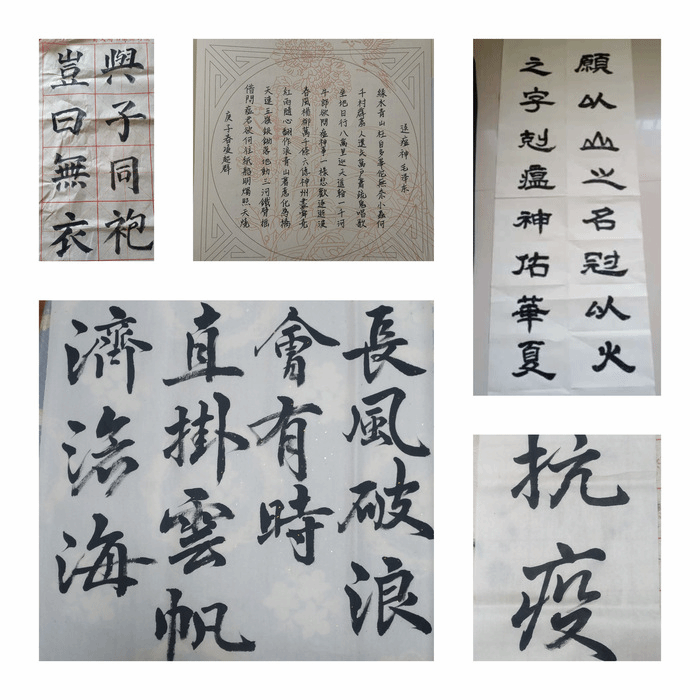 豈曰無衣
與子同袍
送瘟神毛澤东
綠水青山枉自多華佗無奈小蟲何
千村薜荔人遺矢萬户蕭疏鬼唱歌
坐地日行八萬里巡天遥看一千河
牛郎欲問瘟神事一樣悲歡逐逝波
春風楊柳萬千條六億神州盡舜堯
紅雨隨心翻作浪青山著意化為橋
天連五嶺銀鋤落地動三河鐵臂摇
借問瘟君欲何往紙船明燭照天燒
庚子春
願以山之名冠以火
之字剋瘟神佑華夏
長風破浪
會有時
直掛雲帆
濟滄海
抗疫